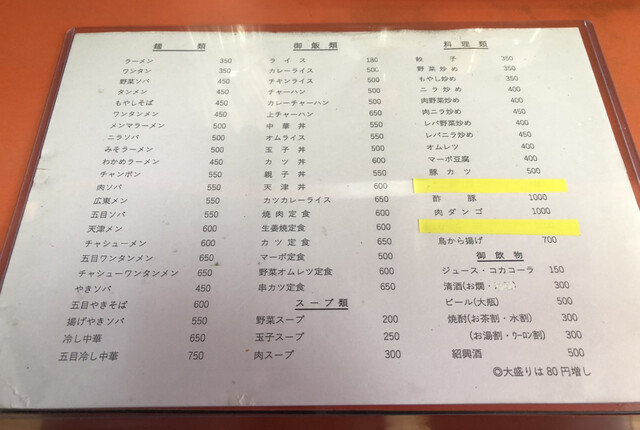 麺類
ラーメン 350
ワンタン 350
野菜ソバ 450
タンメン 450
もやしそば 450
ワンタンメン 450
メンマラーメン 500
ニラソバ 500
みそラーメン 500
わかめラーメン 500
チャンポン 550
肉ソバ 550
広東メン 550
五目ソバ 550
天津メン 600
チャシューメン 600
五目ワンタン 600
チャシューワンタンメン 650
やきソバ 450
五目やきそば 600
揚げやきソバ 550
冷し中華 650
五目冷し中華 750
御飯類
ライス 180
カレーライス 500
チキンライス 500
チャーハン 500
カレーチャーハン 500
上チャーハン 650
中華丼 550
オムライス 550
玉子丼 500
カツ丼 600
親子丼 550
天津丼 600
カツカレーライス 650
焼肉定食 600
生姜焼定食 600
カツ定食 650
マーボ定食 550
野菜オムレツ定食 600
串カツ定食 650
スープ類
野菜スープ 200
玉子スープ 250
肉スープ 300
料理類
餃子 350
野菜炒め 350
もやし炒め 350
ニラ炒め 400
肉野菜炒め 400
肉ニラ炒め 450
レバ野菜炒め 450
レバニラ炒め 450
オムレツ 400
マーボ豆腐 400
豚カツ 500
酢豚 1000
肉ダンゴ 1000
鳥から揚げ 700
御飲物
ジュース・コカコーラ 150
清酒(お燗・ 300
ビール(大瓶) 500
焼酎(お茶割・水割) 300
(お湯割・ウーロン割) 300
紹興酒 500
◎大盛りは80円増し